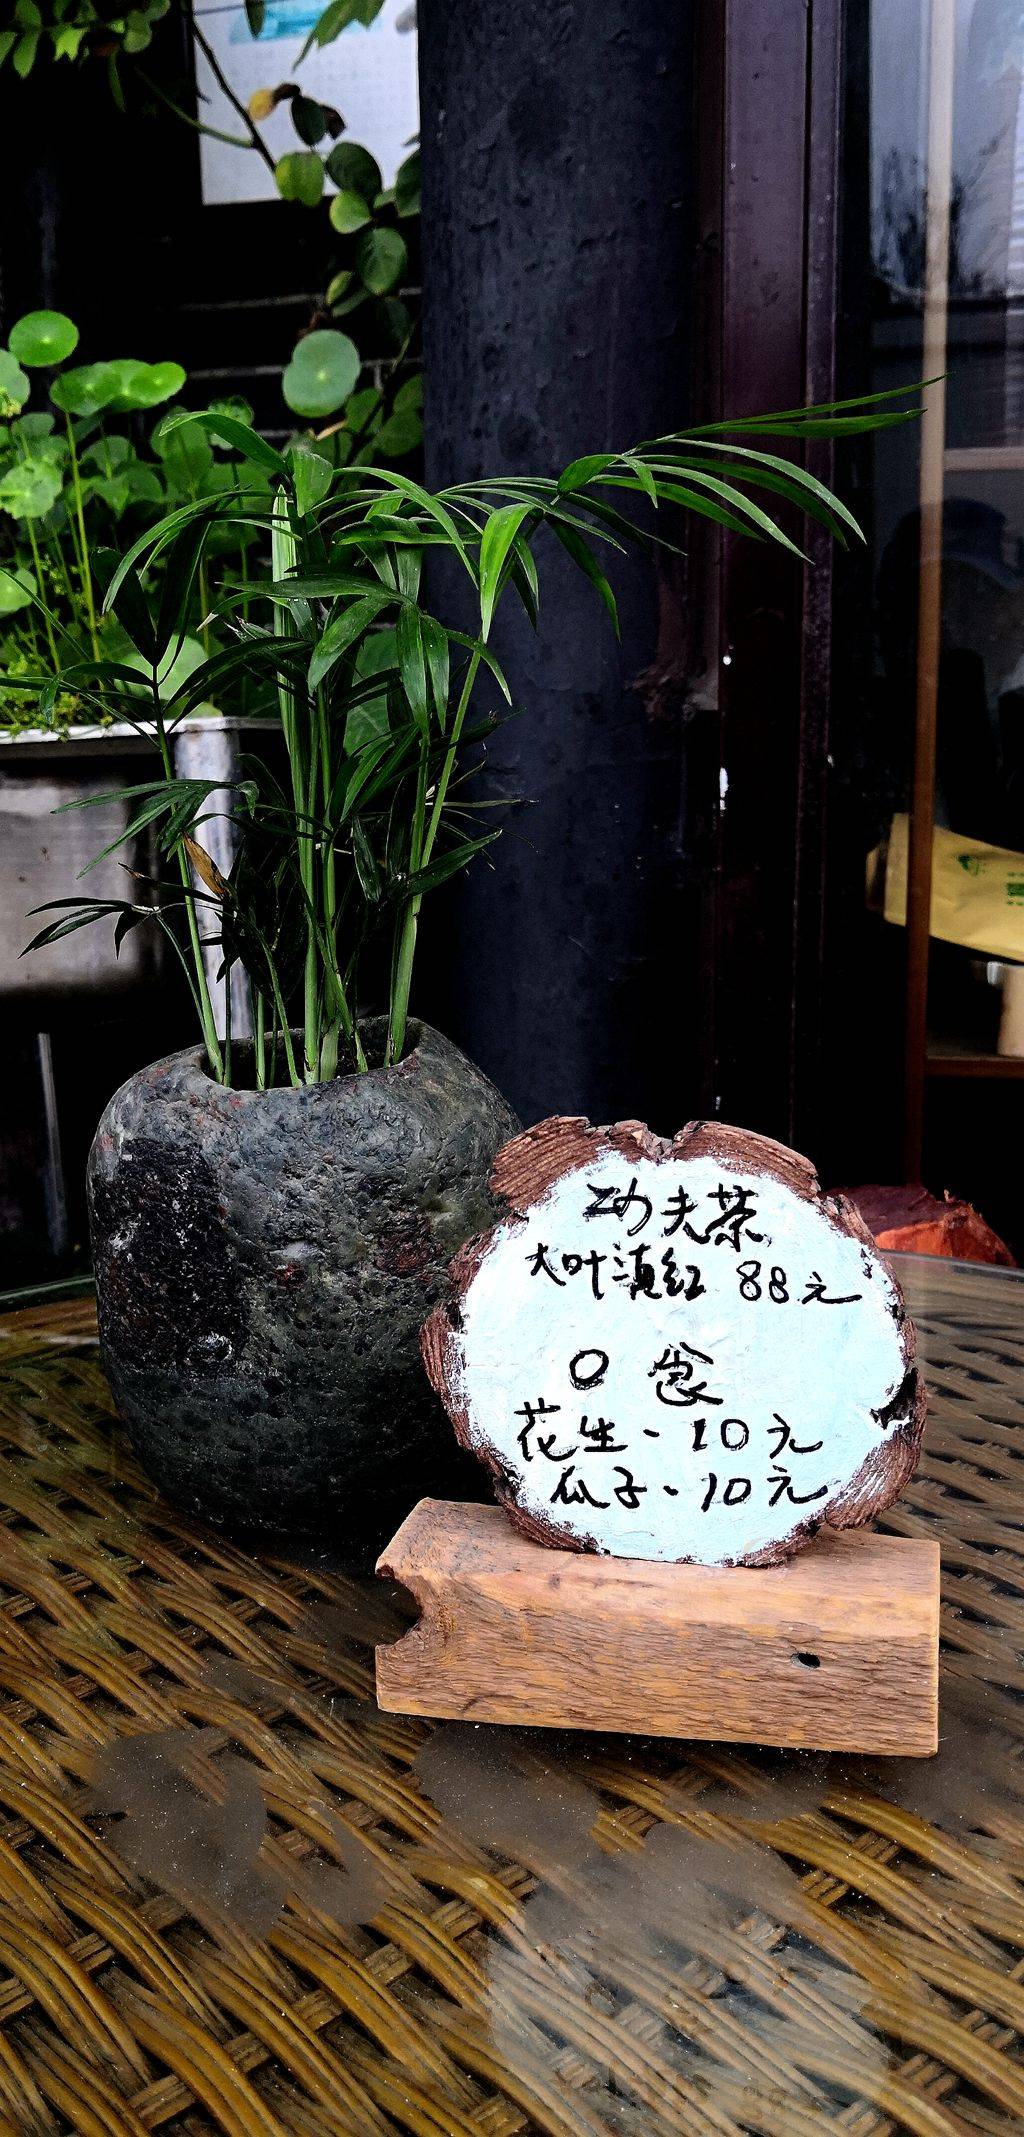 功夫茶
大叶滇红 88元
0 食
花生-10元
瓜子-10元